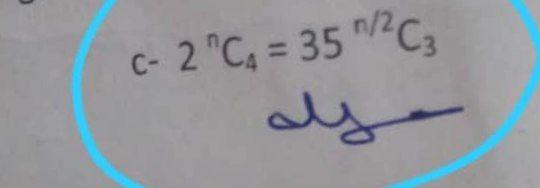 c- 2 ⁿC₄ = 35 ⁿ/²C₃